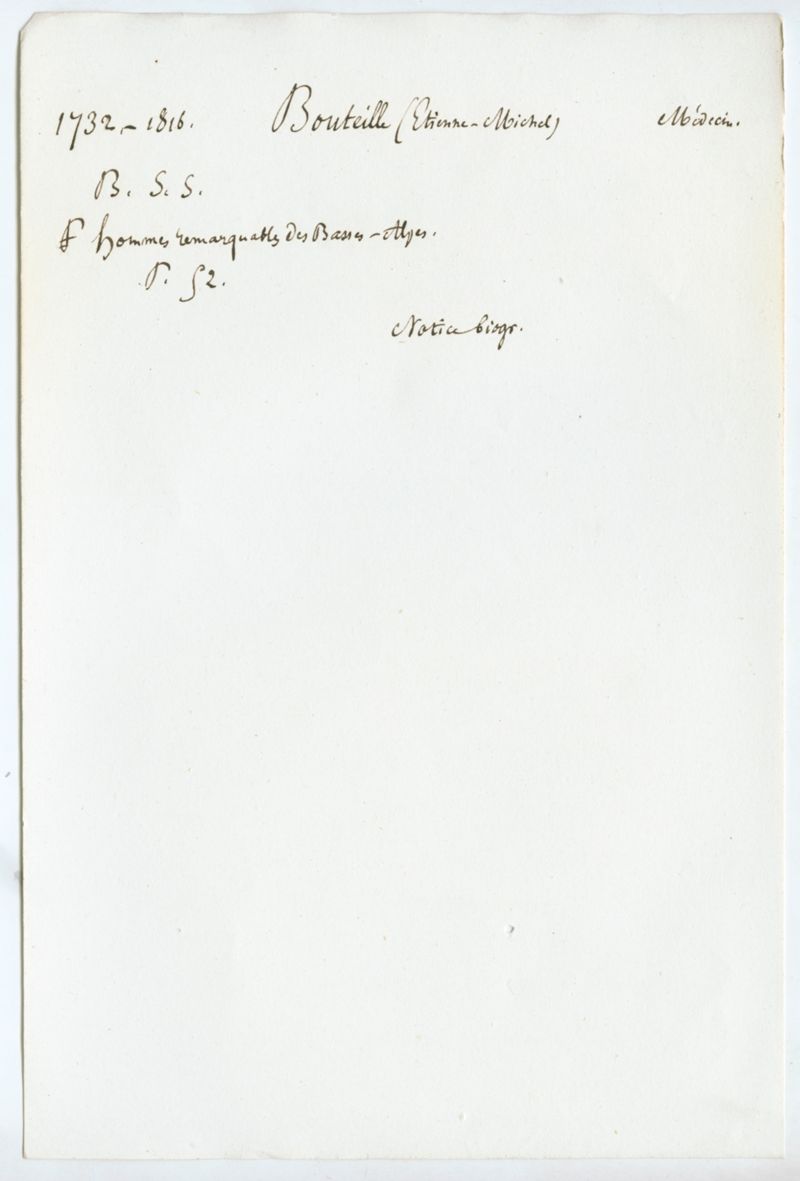 1732.-1816. Bouteille (Etienne-Michel) Médecin.
B. S. S.
hommes remarquables des Basses-Alpes.
P. 52.
Notice biogr.